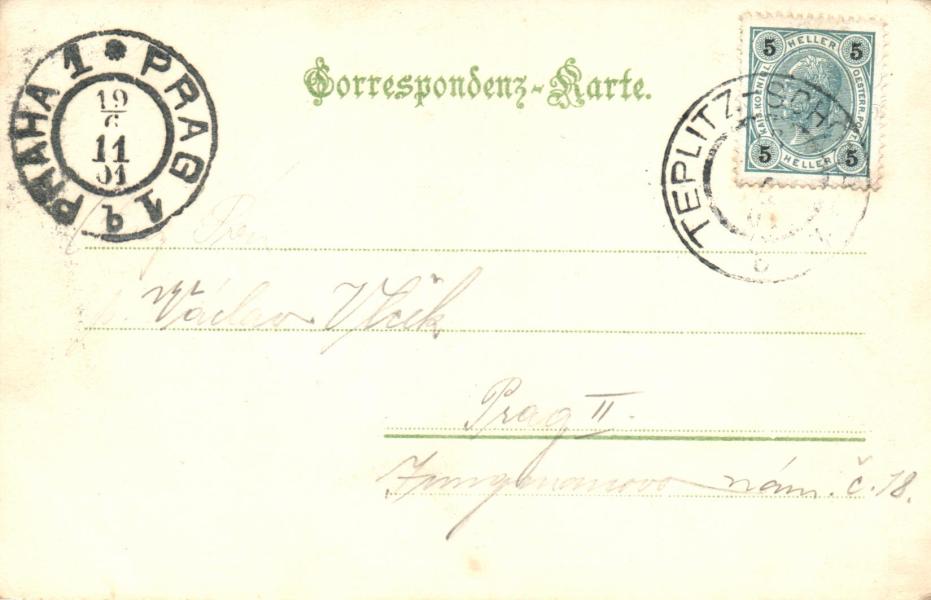 Correspondenz-Karte.
PRAHA 1 * PRAG 1
19/6
11
01
5 HELLER 5
KAIS. KOENIGL. OESTERR. POST
5 HELLER 5
TEPLITZ-SCHÖ
Václav Vlček
Prag II.
Jungmanovo nám. č. 18.